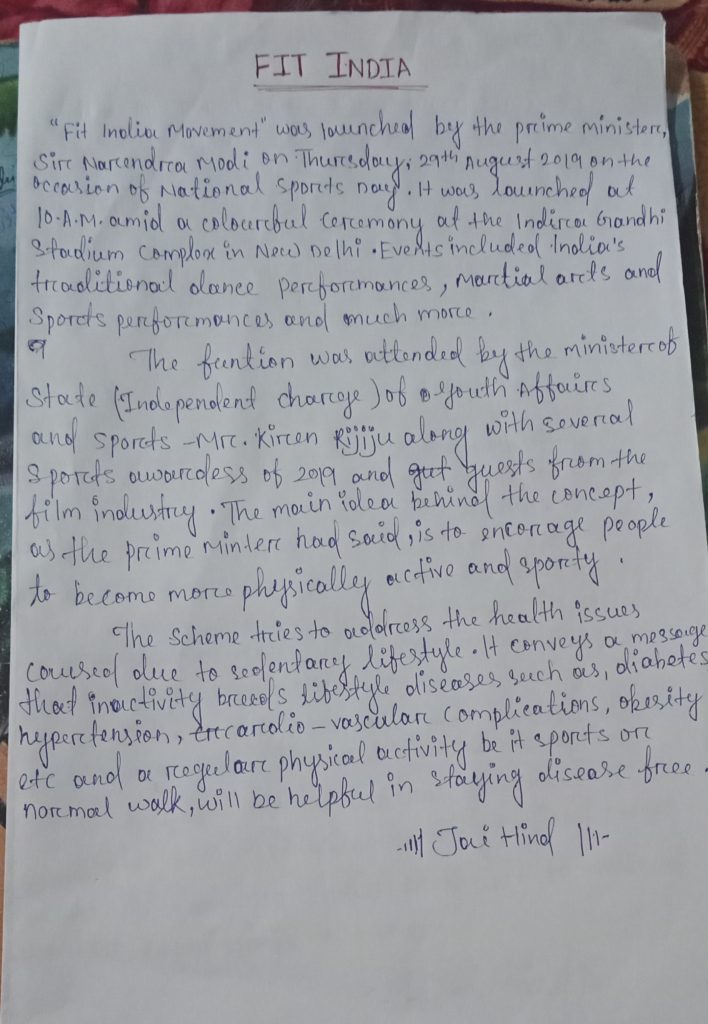 FIT INDIA
"Fit India Movement" was launched by the prime minister,
Sir Narendra Modi on Thursday, 29th August 2019 on the
occasion of National Sports Day. It was launched at
10.A.M. amid a colourful ceremony at the Indira Gandhi
Stadium Complex in New Delhi. Events included India's
traditional dance performances, martial arts and
Sports performances and much more.
The funtion was attended by the minister of
State (Independent charge) of youth Affairs
and sports - Mr. Kiren Rijiju along with several
Sports awardess of 2019 and guests from the
film industry. The main idea behind the concept,
as the prime minter had said, is to encorage people
to become more physically active and sporty.
The scheme tries to address the health issues
caused due to sedentary lifestyle. It conveys a message
that inactivity breeds lifestyle diseases such as, diabetes
hypertension, cardio-vascular complications, obesity
etc and a regular physical activity be it sports or
normal walk, will be helpful in staying disease free.
-||| Jai Hind |||-